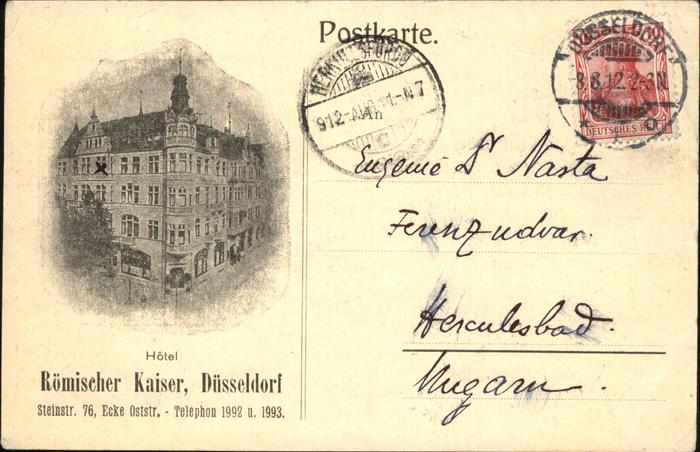 Postkarte.
DÜSSELDORF
8.12.2-3N
DEUTSCHES REICH
An
Eugenie D' Nasta
Ferenz udvar.
Herculesbad.
Ungarn.
Hôtel
Römischer Kaiser, Düsseldorf
Steinstr. 76, Ecke Oststr. - Telephon 1992 u. 1993.